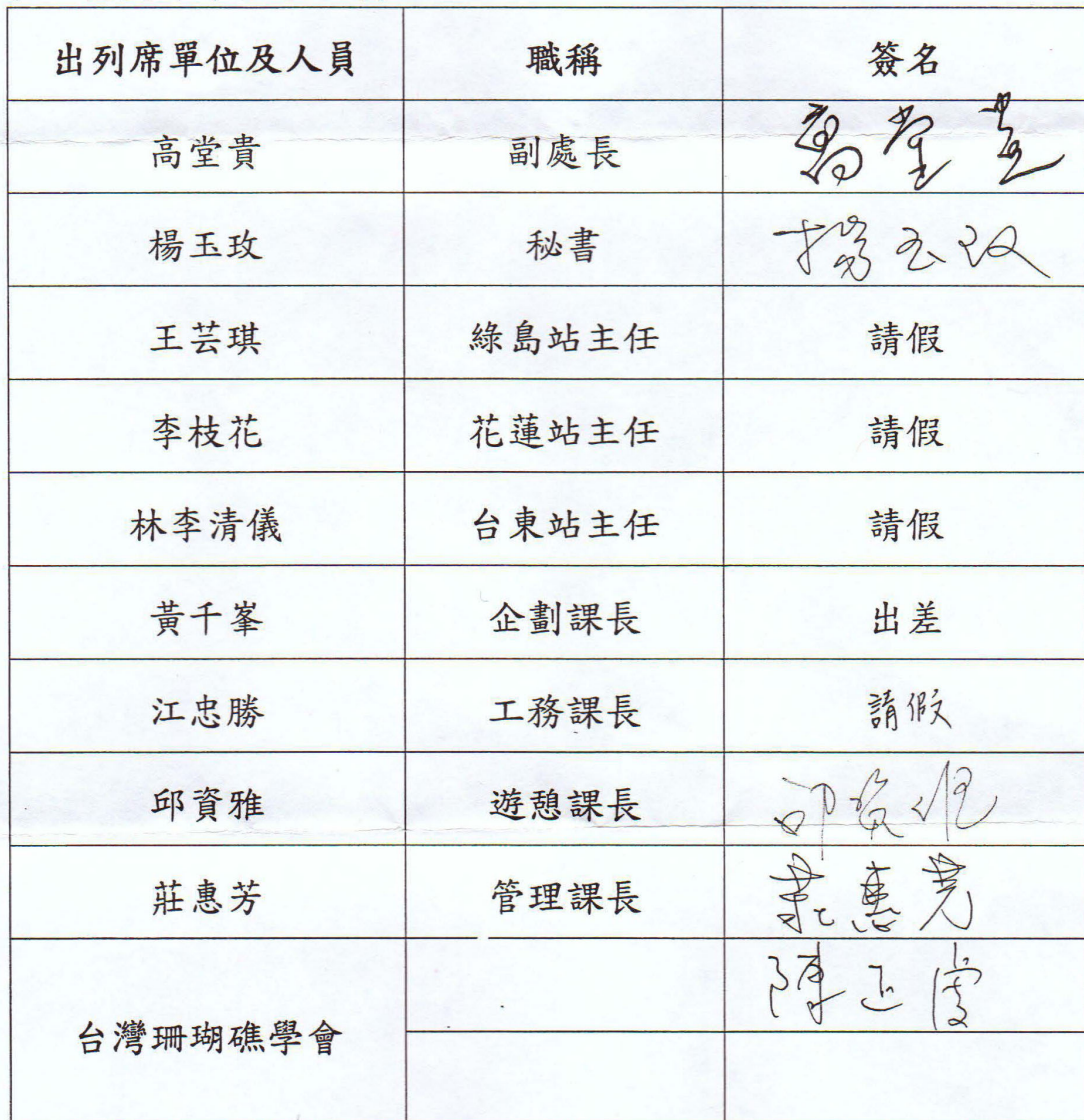 出列席單位及人員 職稱 簽名
高堂貴 副處長 高堂貴
楊玉玫 秘書 楊玉玫
王芸琪 綠島站主任 請假
李枝花 花蓮站主任 請假
林李清儀 台東站主任 請假
黃千峯 企劃課長 出差
江忠勝 工務課長 請假
邱資雅 遊憩課長 邱資雅
莊惠芳 管理課長 莊惠芳
台灣珊瑚礁學會 陳正虔